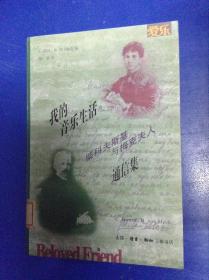 爱乐
我的
音乐生活
柴科夫斯基
与梅克夫人
通信集
生活·读书·新知三联书店
Beloved Friend